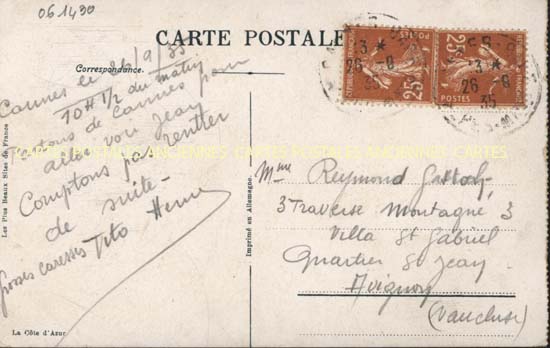 061490
CARTE POSTALE
Correspondance.
Cannes le 26/9/35
10H 1/2 du matin
partons de Cannes pour
aller voir Jean
Comptons pas rentrer
de suite-
Grosses caresses Tito
Les Plus Beaux Sites de France
La Côte d'Azur
Imprimé en Allemagne.
25c
POSTES
-3 *
26 -9
35
25c
POSTES
-3 *
26 -9
35
CARTES POSTALES ANCIENNES CARTES POSTALES ANCIENNES CARTES
Mme Reymond
3 Traverse Montagné 3
Villa St Gabriel
Quartier St Jean
Avignon
(Vaucluse)